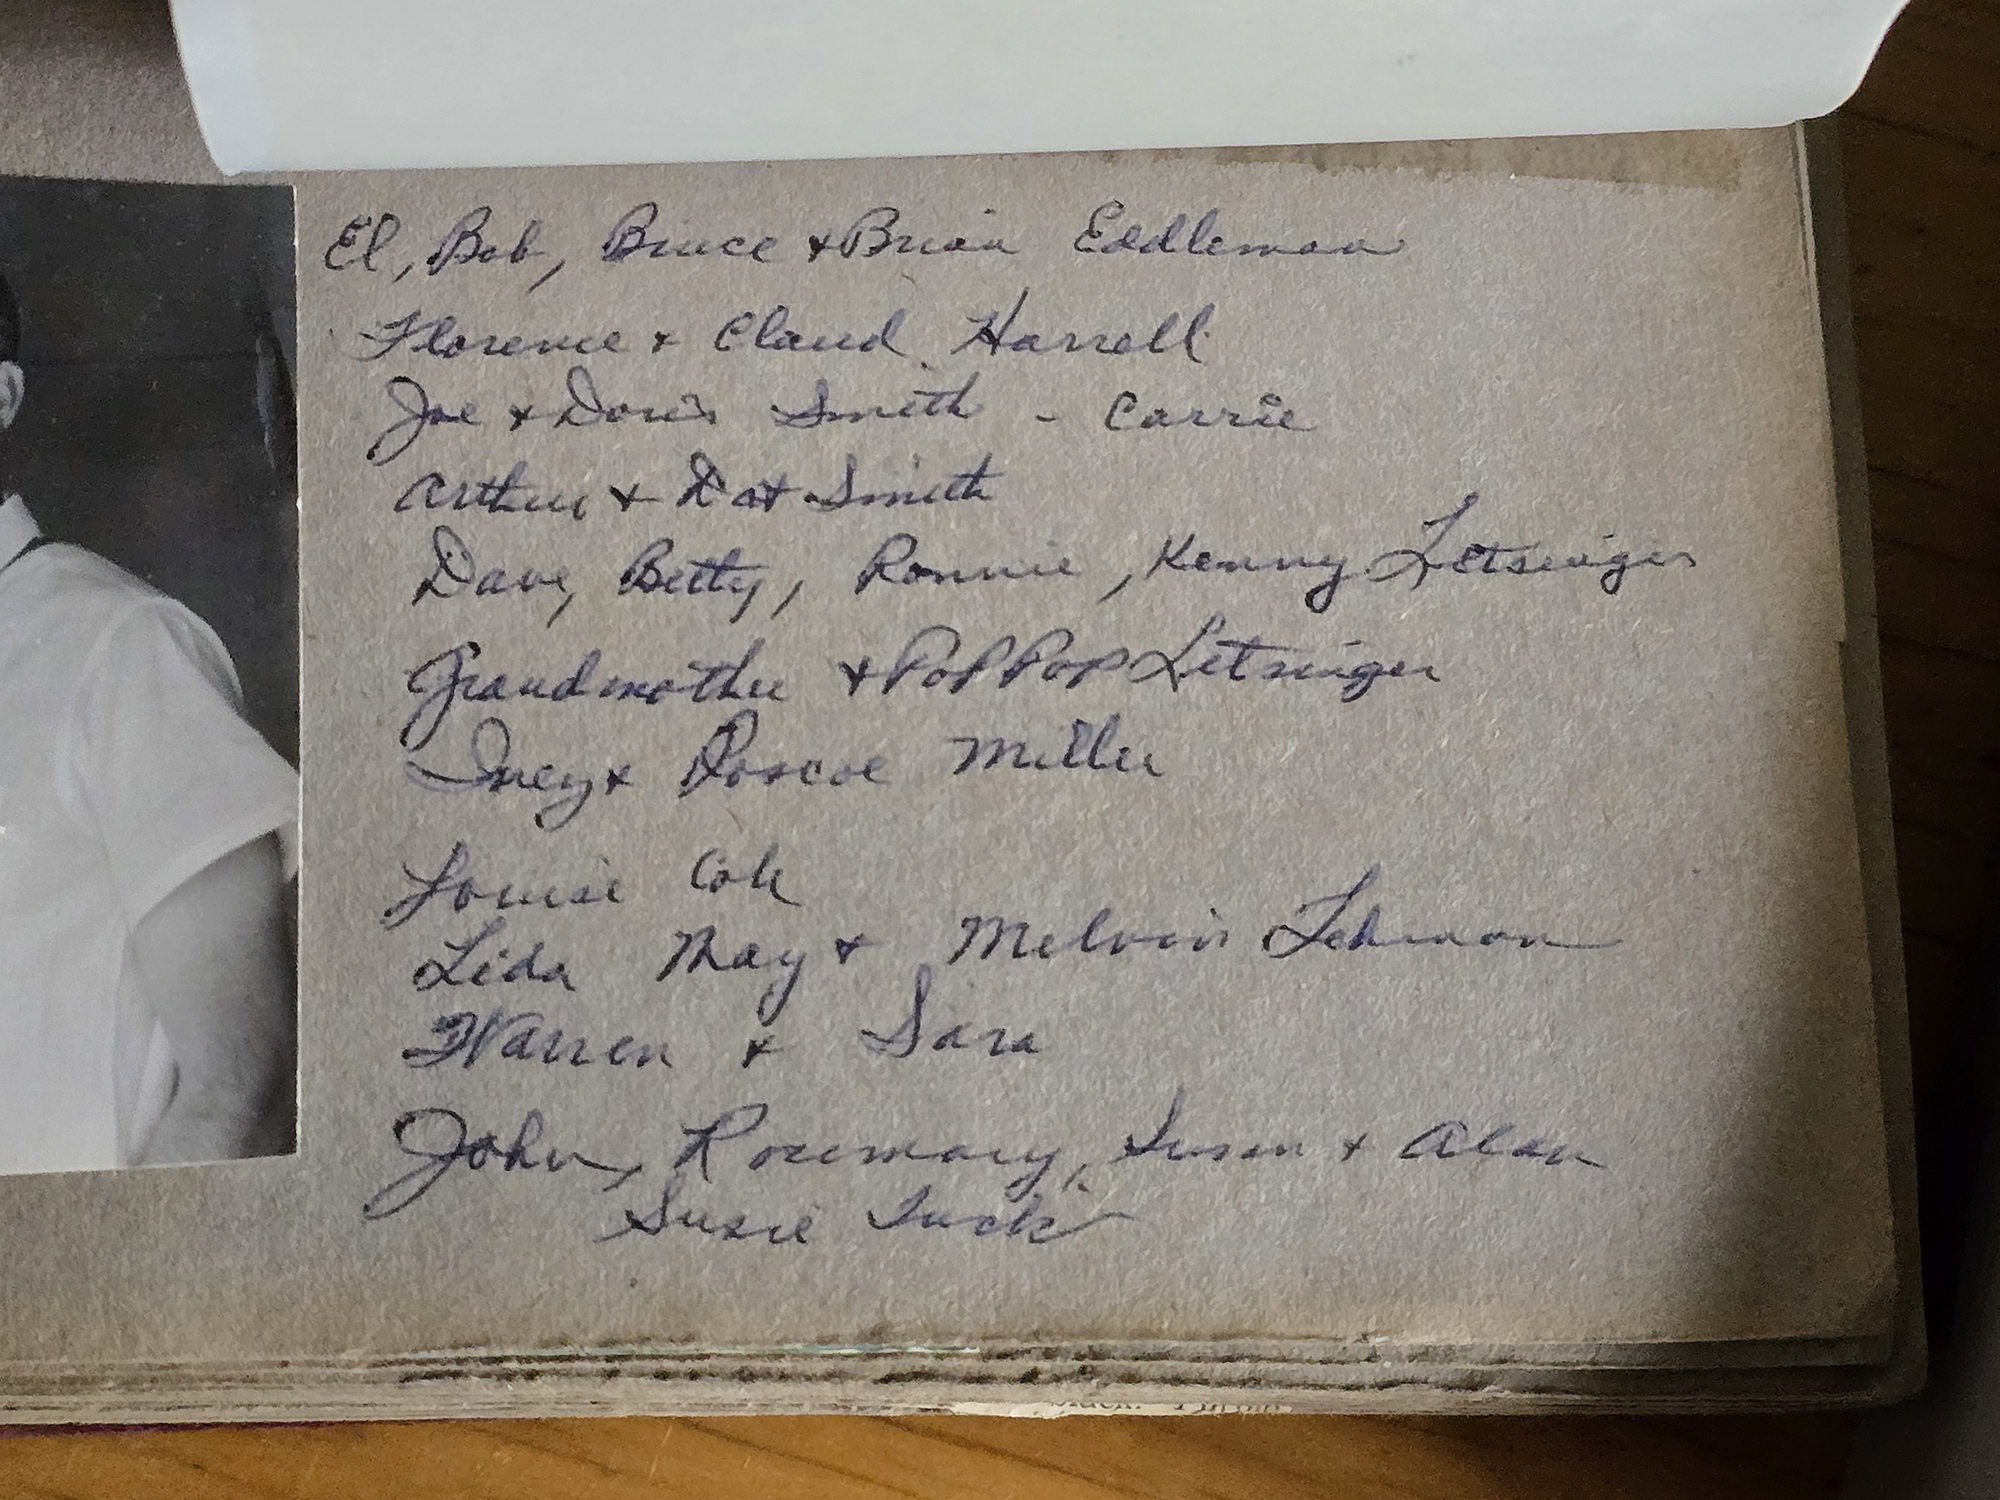 El, Bob, Bruce & Brian Eddleman
Florence & Claud Harrell
Joe & Doris Smith - Carrie
Arthur & Dot Smith
Dave, Betty, Ronnie, Kenny Letsinger
Grandmother & PopPop Letsinger
Incy & Roscoe Miller
Louise Cole
Lida May & Melvin Lehman
Warren & Sara
John, Rosemary, Susan & Alan
Susie Tuck